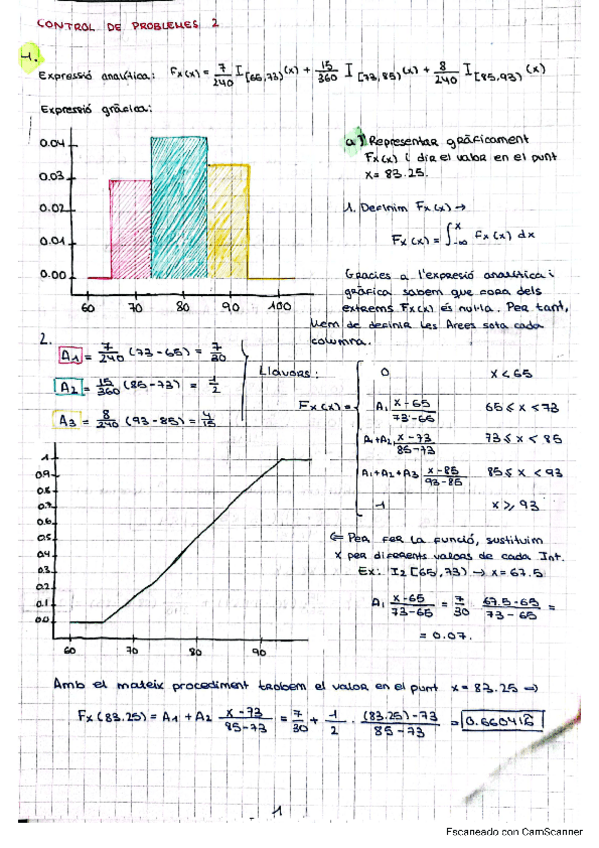 CONTROL DE PROBLEMES 2
4.
Expressió analítica: Fx(x) = 7/240 I[65,73)(x) + 15/360 I[73,85)(x) + 8/240 I[85,93)(x)
Expressió gràfica:
0.04
0.03
0.02
0.01
0.00
60 70 80 90 100
a) Representar gràficament
Fx(x) i dir el valor en el punt
x= 83.25.
1. Definim Fx(x) →
Fx(x) = ∫-∞^x Fx(x) dx
Gràcies a l'expresió analítica i
gràfica sabem que fora dels
extrems Fx(x) és nul·la. Per tant,
hem de definir les Àrees sota cada
columna.
2.
A1 = 7/240 (73-65) = 7/30
A2 = 15/360 (85-73) = 1/2
A3 = 8/240 (93-85) = 4/15
Llavors:
Fx(x) =
0 x < 65
A1 x-65/73-65 65 ≤ x < 73
A1+A2 x-73/85-73 73 ≤ x < 85
A1+A2+A3 x-85/93-85 85 ≤ x < 93
1 x ≥ 93
1
0.9
0.8
0.7
0.6
0.5
0.4
0.3
0.2
0.1
0.0
60 70 80 90
⇐ Per fer la funció, sustituim
x per diferents valors de cada Int.
Ex: I2 [65,73) → x = 67.5
A1 x-65/73-65 = 7/30 67.5-65/73-65 =
= 0.07.
Amb el mateix procediment trobem el valor en el punt x = 83.25 ⇒
Fx(83.25) = A1 + A2 x-73/85-73 = 7/30 + 1/2 · (83.25)-73/85-73 = 0.660416
1
Escaneado con CamScanner